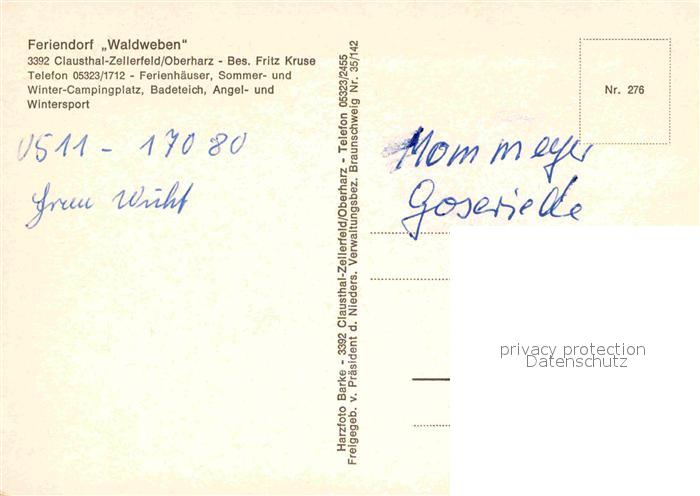 Feriendorf „Waldweben“
3392 Clausthal-Zellerfeld/Oberharz - Bes. Fritz Kruse
Telefon 05323/1712 - Ferienhäuser, Sommer- und
Winter-Campingplatz, Badeteich, Angel- und
Wintersport
0511 - 170 80
Frau
Harzfoto Barke - 3392 Clausthal-Zellerfeld/Oberharz - Telefon 05323/2455
Freigegeb. v. Präsident d. Nieders. Verwaltungsbez. Braunschweig Nr. 35/142
Nr. 276
Mommeyer
Goseriede
privacy protection
Datenschutz